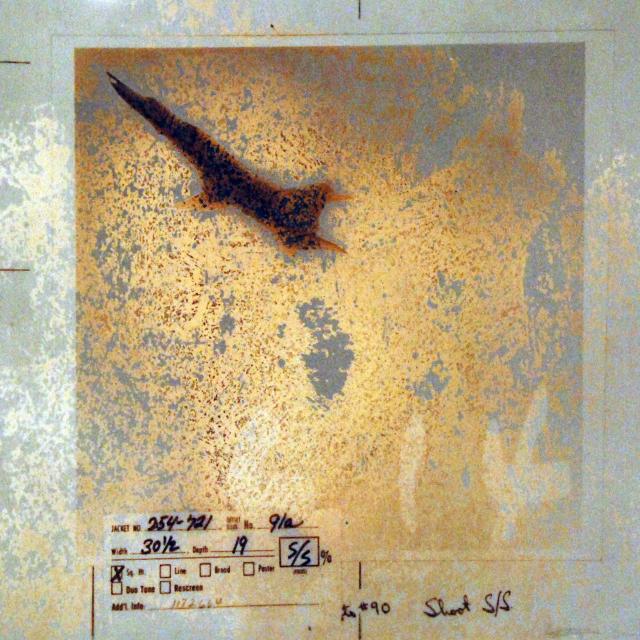 JACKET NO. 254-721 No. 91a
Width 30½ Depth 19 S/S %
X Sq. Line Broad Poster
Duo Tone Rescreen
Add'l. Info.
#90 Shoot S/S